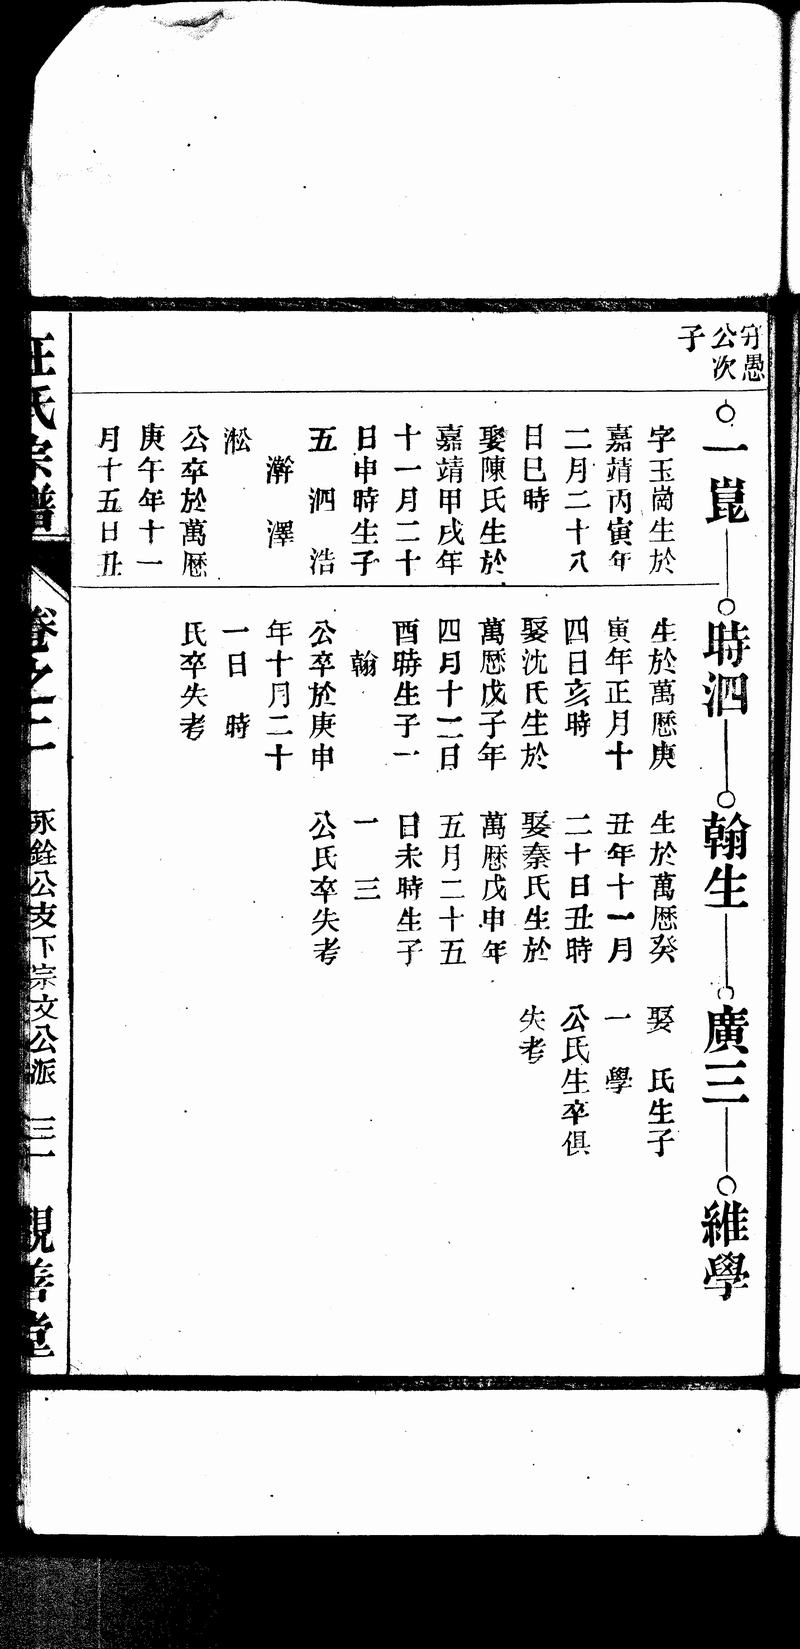 守愚
公次
子
一崑
字玉崗生於
嘉靖丙寅年
二月二十八
日巳時
娶陳氏生於
嘉靖甲戌年
十一月二十
日申時生子
五 泗 浩
澣 澤
淞
公卒於萬歷
庚午年十一
月十五日丑
時泗
生於萬歷庚
寅年正月十
四日亥時
娶沈氏生於
萬歷戊子年
四月十二日
酉時生子一
翰
公卒於庚申
年十月二十
一日 時
氏卒失考
翰生
生於萬歷癸
丑年十一月
二十日丑時
娶秦氏生於
萬歷戊申年
五月二十五
日未時生子
一 三
公氏卒失考
廣三
娶 氏生子
一 學
公氏生卒俱
失考
維學
汪氏宗譜
卷之二
永銓公支下宗文公派
觀善堂